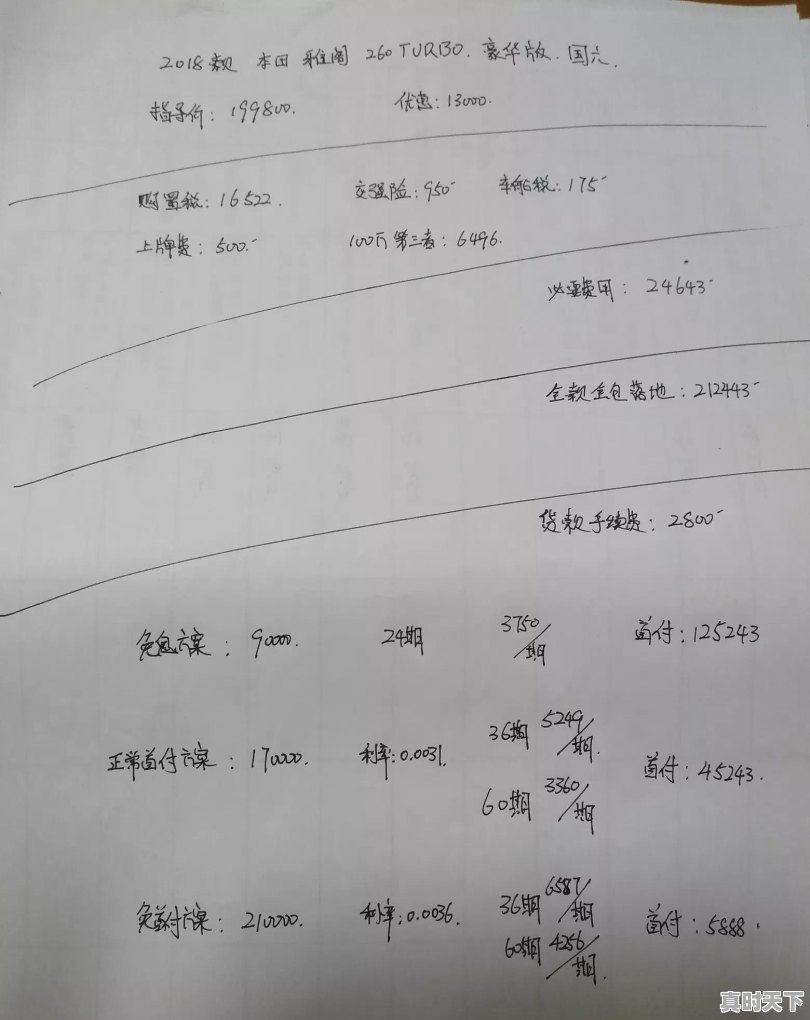 2018款 本田 雅阁 260TURBO. 豪华版. 国六.
指导价: 199800. 优惠: 13000.
购置税: 16522. 交强险: 950 车船税: 175
上牌费: 500. 100万第三者: 6496.
必要费用: 24643
全款全包落地: 212443
贷款手续费: 2800
免息方案: 90000. 24期 3750/期 首付: 125243
正常首付方案: 170000. 利率: 0.0031. 36期 5249/期. 首付: 45243.
60期 3360/期
免首付方案: 210000. 利率: 0.0036. 36期 6587/期 首付: 5888.
60期 4256/期.
真时天下